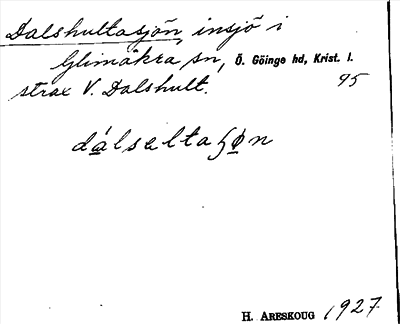 Dalshultasjön, insjö i
Glimåkra sn, Ö. Göinge hd, Krist. l.
strax V. Dalshult. 95
dálseltaʃøn
H. ARESKOUG 1927